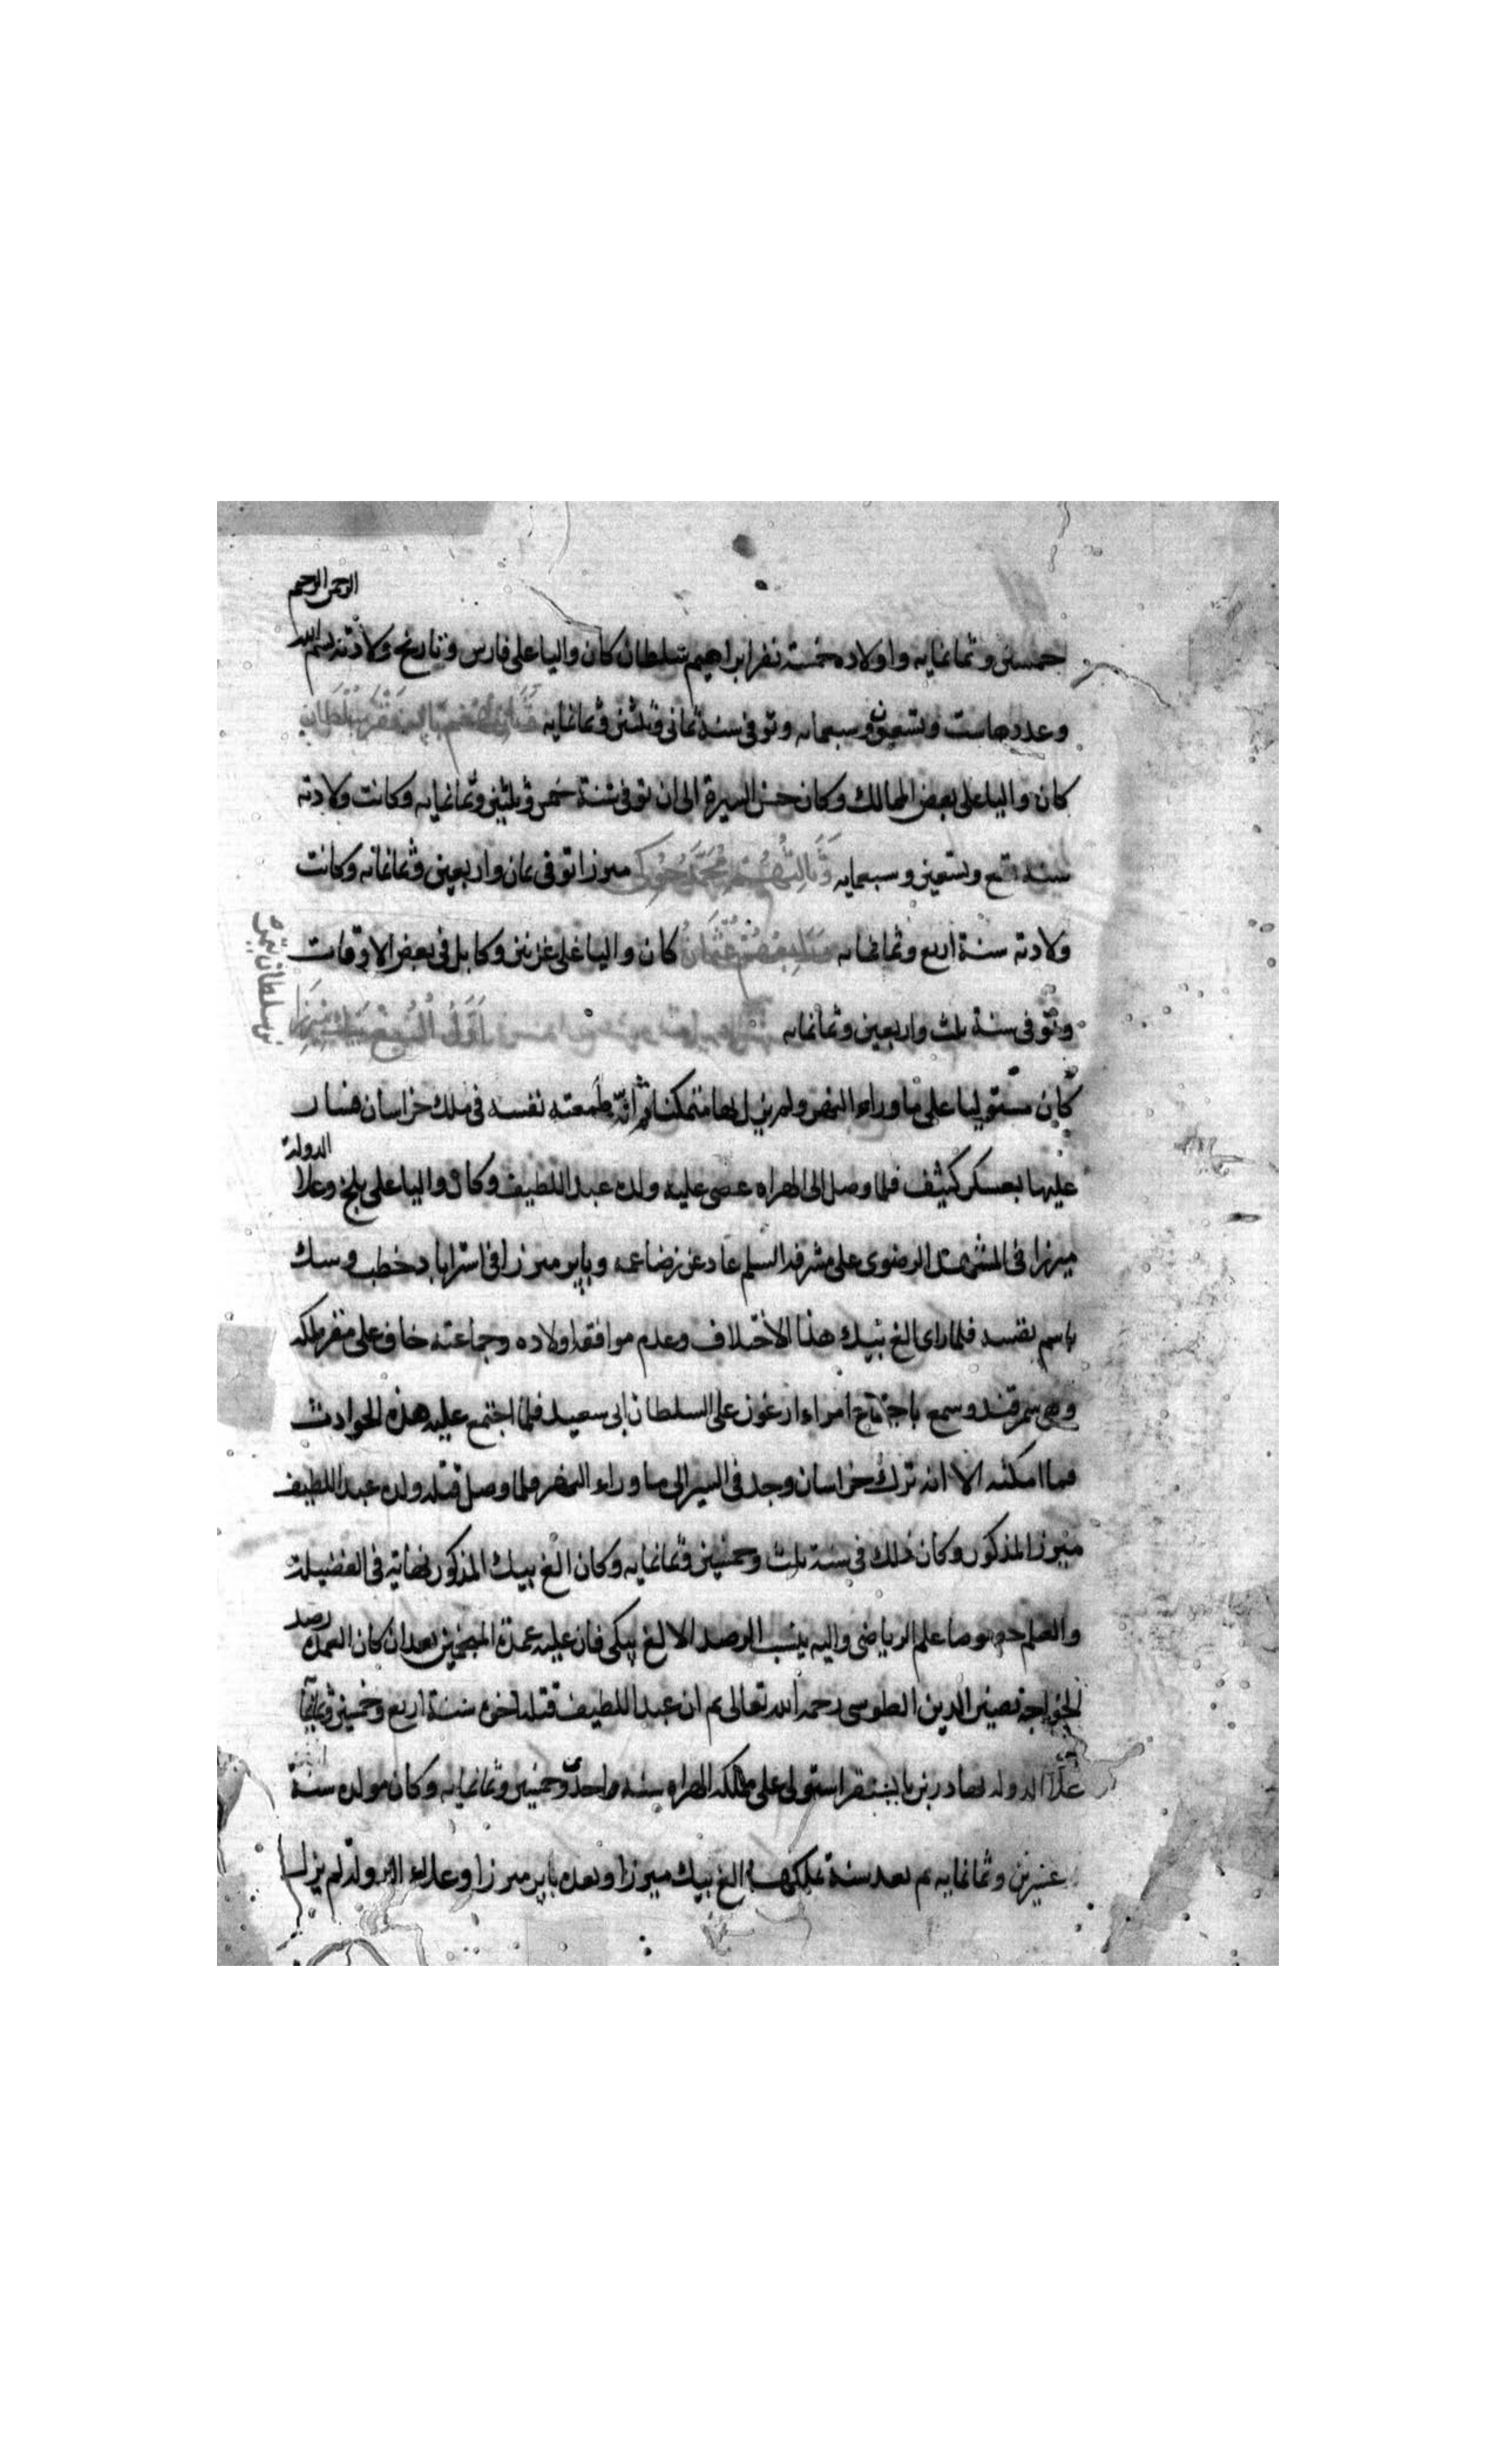 الرحمن الرحيم
خمسين وثمانمايه واولاده خمسة نفر ابراهيم سلطان كان واليا على فارس وتاريخ ولادته بسم الله
وعددها ست وتسعين وسبعمايه وتوفى سنة ثمانى وثلثين وثمانمايه
كان واليا على بعض الممالك وكان حسن السيرة الى ان توفى سنة خمس وثلثين وثمانمايه وكانت ولادته
سنه تسع وتسعين وسبعمايه وثالثهم محمد جوكى ميرزا توفى ثمان واربعين وثمانمائه وكانت
ولادته سنة اربع وثمانمايه كان واليا على غزنين وكابل فى بعض الاوقات
وتوفى سنة ثلث واربعين وثمانمايه
بن سلطان
كان مستوليا على ما وراء النهر ولم يزل بها متمكنا ثم انه طمعته نفسه فى ملك خراسان فسار
عليها بعسكر كثيف فلما وصل الى الهراه عصى عليه ولده عبد اللطيف وكان واليا على بلخ وعلا الدولة
ميرزا فى المشهد الرضوى على مشرفه السلم عاد عن رضاعه وبابر ميرزا فى استراباد خطب وسك
باسم نفسه فلما راى الغ بيك هذا الاختلاف وعدم موافقه اولاده وجماعته خاف على مقر ملكه
وهى سمرقند وسمع باجتماع امراء ارغون على السلطان ابى سعيد فلما اجتمع عليه هذه الحوادث
فما امكنه الا انه ترك خراسان وجد فى السير الى ما وراء النهر فلما وصل قتله ولده عبد اللطيف
ميرزا المذكور وكان ذلك فى سنة ثلث وخمسين وثمانمايه وكان الغ بيك المذكور نهاية فى الفضيلة
والعلم خصوصا علم الرياضى واليه ينسب الرصد الالغ بيكى فان عليه عمدة المنجمين بعد ان كان العمدة رصد
الخواجة نصير الدين الطوسى رحمه الله تعالى ثم ان عبد اللطيف قتله اخوه سنة اربع وخمسين وثمانمايه
علا الدوله بهادر بن بايسنقر استولى على مملكه الهراه سنه واحد وخمسين وثمانمايه وكان مولده سنة
عشرين وثمانمايه ثم بعد سنة ملكها الغ بيك ميرزا وبعده بابر ميرزا وعلاء الدولة لم يزل